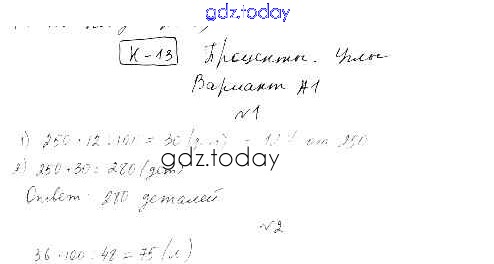 gdz.today
К-13 Проценты. Углы
Вариант А1
№1
1) 250 · 12 : 100 = 30 (дет) - 12% от 250
2) 250 + 30 = 280 (дет)
gdz.today
Ответ: 280 деталей
№2
36 · 100 : 48 = 75 (л)